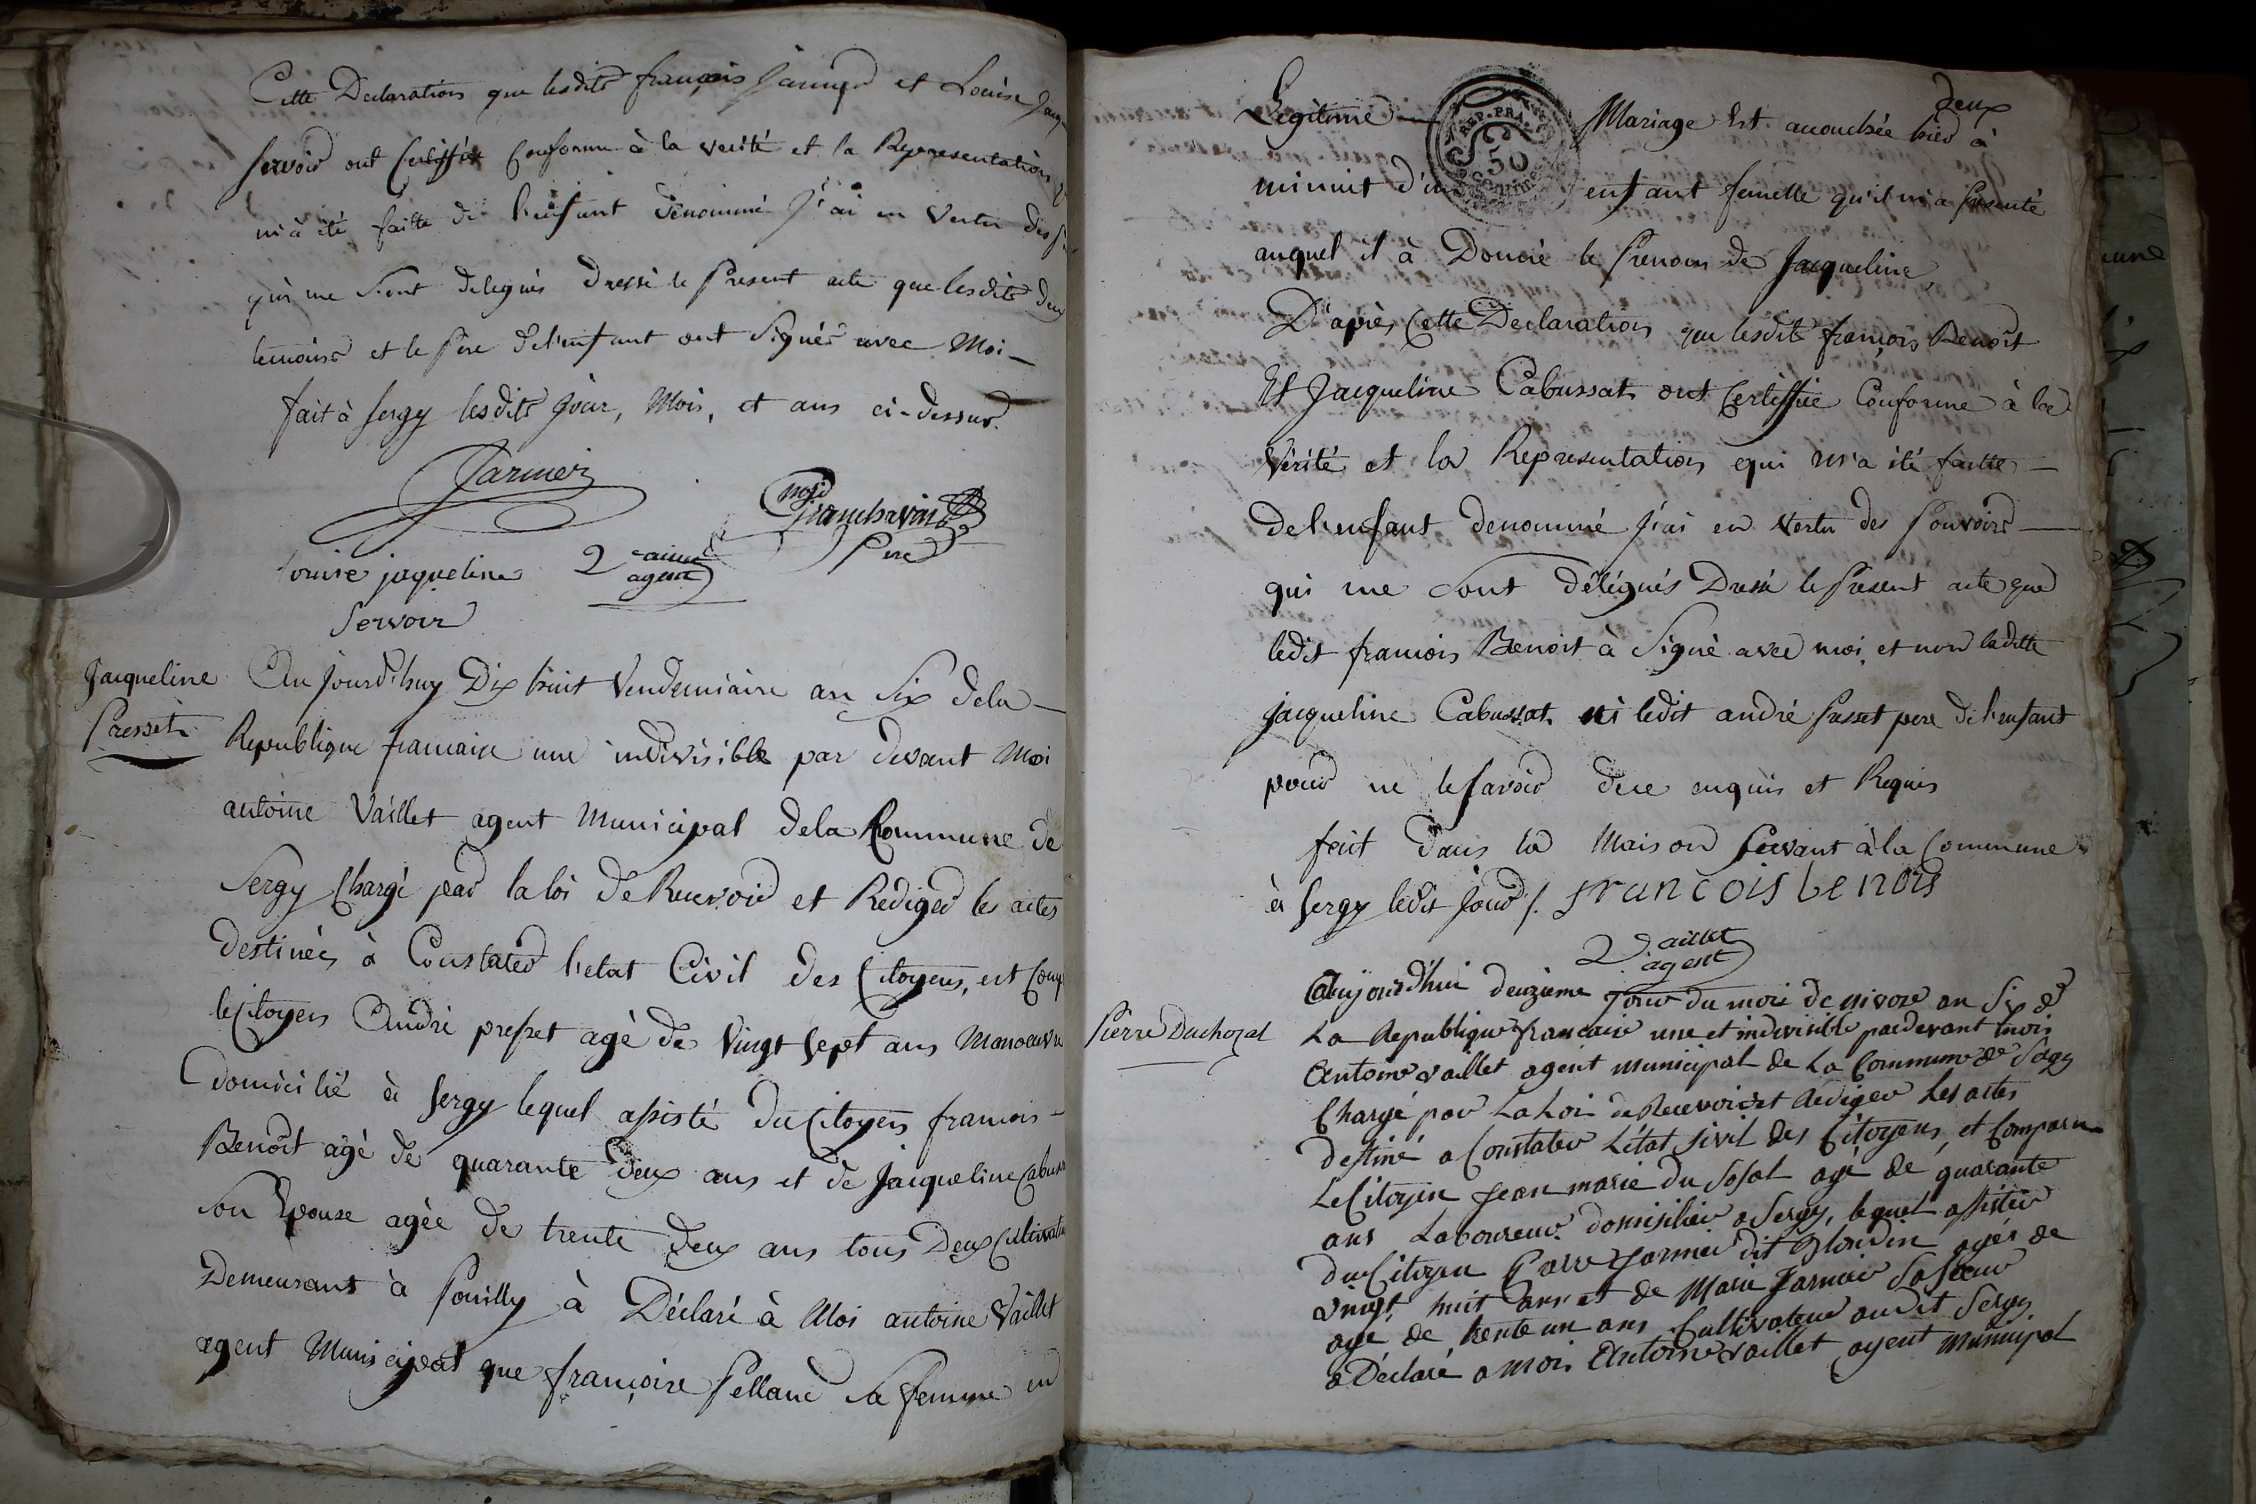 Cette Declaration que lesdits françois Jarnier et Louise Jaq
Servoir ont Certiffiée Conforme à la verité et la Representation
m'a été faitte de l'enfant denommé J'ai en vertu des
qui me Sont delegués dressé le present acte que lesdits deux
temoins et le pere del'enfant ont Signés avec Moi —
fait à Sergy lesdits jour, Mois, et ans ci-dessus.
Jarnier
père
louise jaqueline
Vaillet
agent
Servoir
Jacqueline
Presset
Au jourd'huy Dix huit Vendemiaire an Six dela —
Republique francaise une indivisible par devant Moi
antoine Vaillet agent Municipal dela Commune de
Sergy Chargé par la loi de Recevoir et Rediger les actes
destinés à Constater l'etat Civil des Citoyens, est Comp
le Citoyen André presset agé de Vingt Sept ans Manoeuvre
domicilié à Sergy lequel assisté du Citoyen francois —
Benoit agé de quarante deux ans et de Jacqueline Cabuss
Son Epouse agée de trente deux ans tous Deux Cultivate
Demeurant à Pouilly à Déclaré à Moi antoine Vaillet
agent Municipal que françoise Pelland Sa femme en
Legitime — Mariage Est accouchée hier à deux
REP. FRA.
50
minuit d'un enfant femelle qu'il m'a presenté
auquel il à Donné le Prenom de Jacqueline
D'après Cette Declaration que lesdits françois Benoit
Et Jacqueline Cabussat ont Certiffiée Conforme à la
Vérité et la Representation qui m'a été faitte —
del'enfant denommé J'ai en Vertu des Pouvoirs —
qui me Sont Délégués Dressé le Present acte que
ledit francois Benoit à Signé avec moi, et non laditte
jacqueline Cabussat ni ledit andré Presset pere del'enfant
pour ne le Savoir dece enquis et Requis
fait dans la Maison Servant à la Commune
à Sergy ledit jour /. francois benois
Vaillet
agent
Pierre Duchosal
Aujourd'hui deuzieme Jour du mois de nivose an Six de
La Republique francaise une et indivisible pardevant mois
Antoine vaillet agent municipal de La Commune de Sergy
Chargé par La Loi de Recevoir et Rediger Les actes
destiné a Constater L'état sivil des Citoyens, et Comparu
Le Citoyen Jean marie du Sosal agé de quarante
ans Laboureur domisilier a Sergy, lequel assister
du Citoyen Jarnier dit Blondin agés de
vingt huit ans et de Marie Jarnier Sa Soeur
agé de trente un ans Cultivateur audit Sergy
a Déclaré a mois Antoine vaillet agent municipal